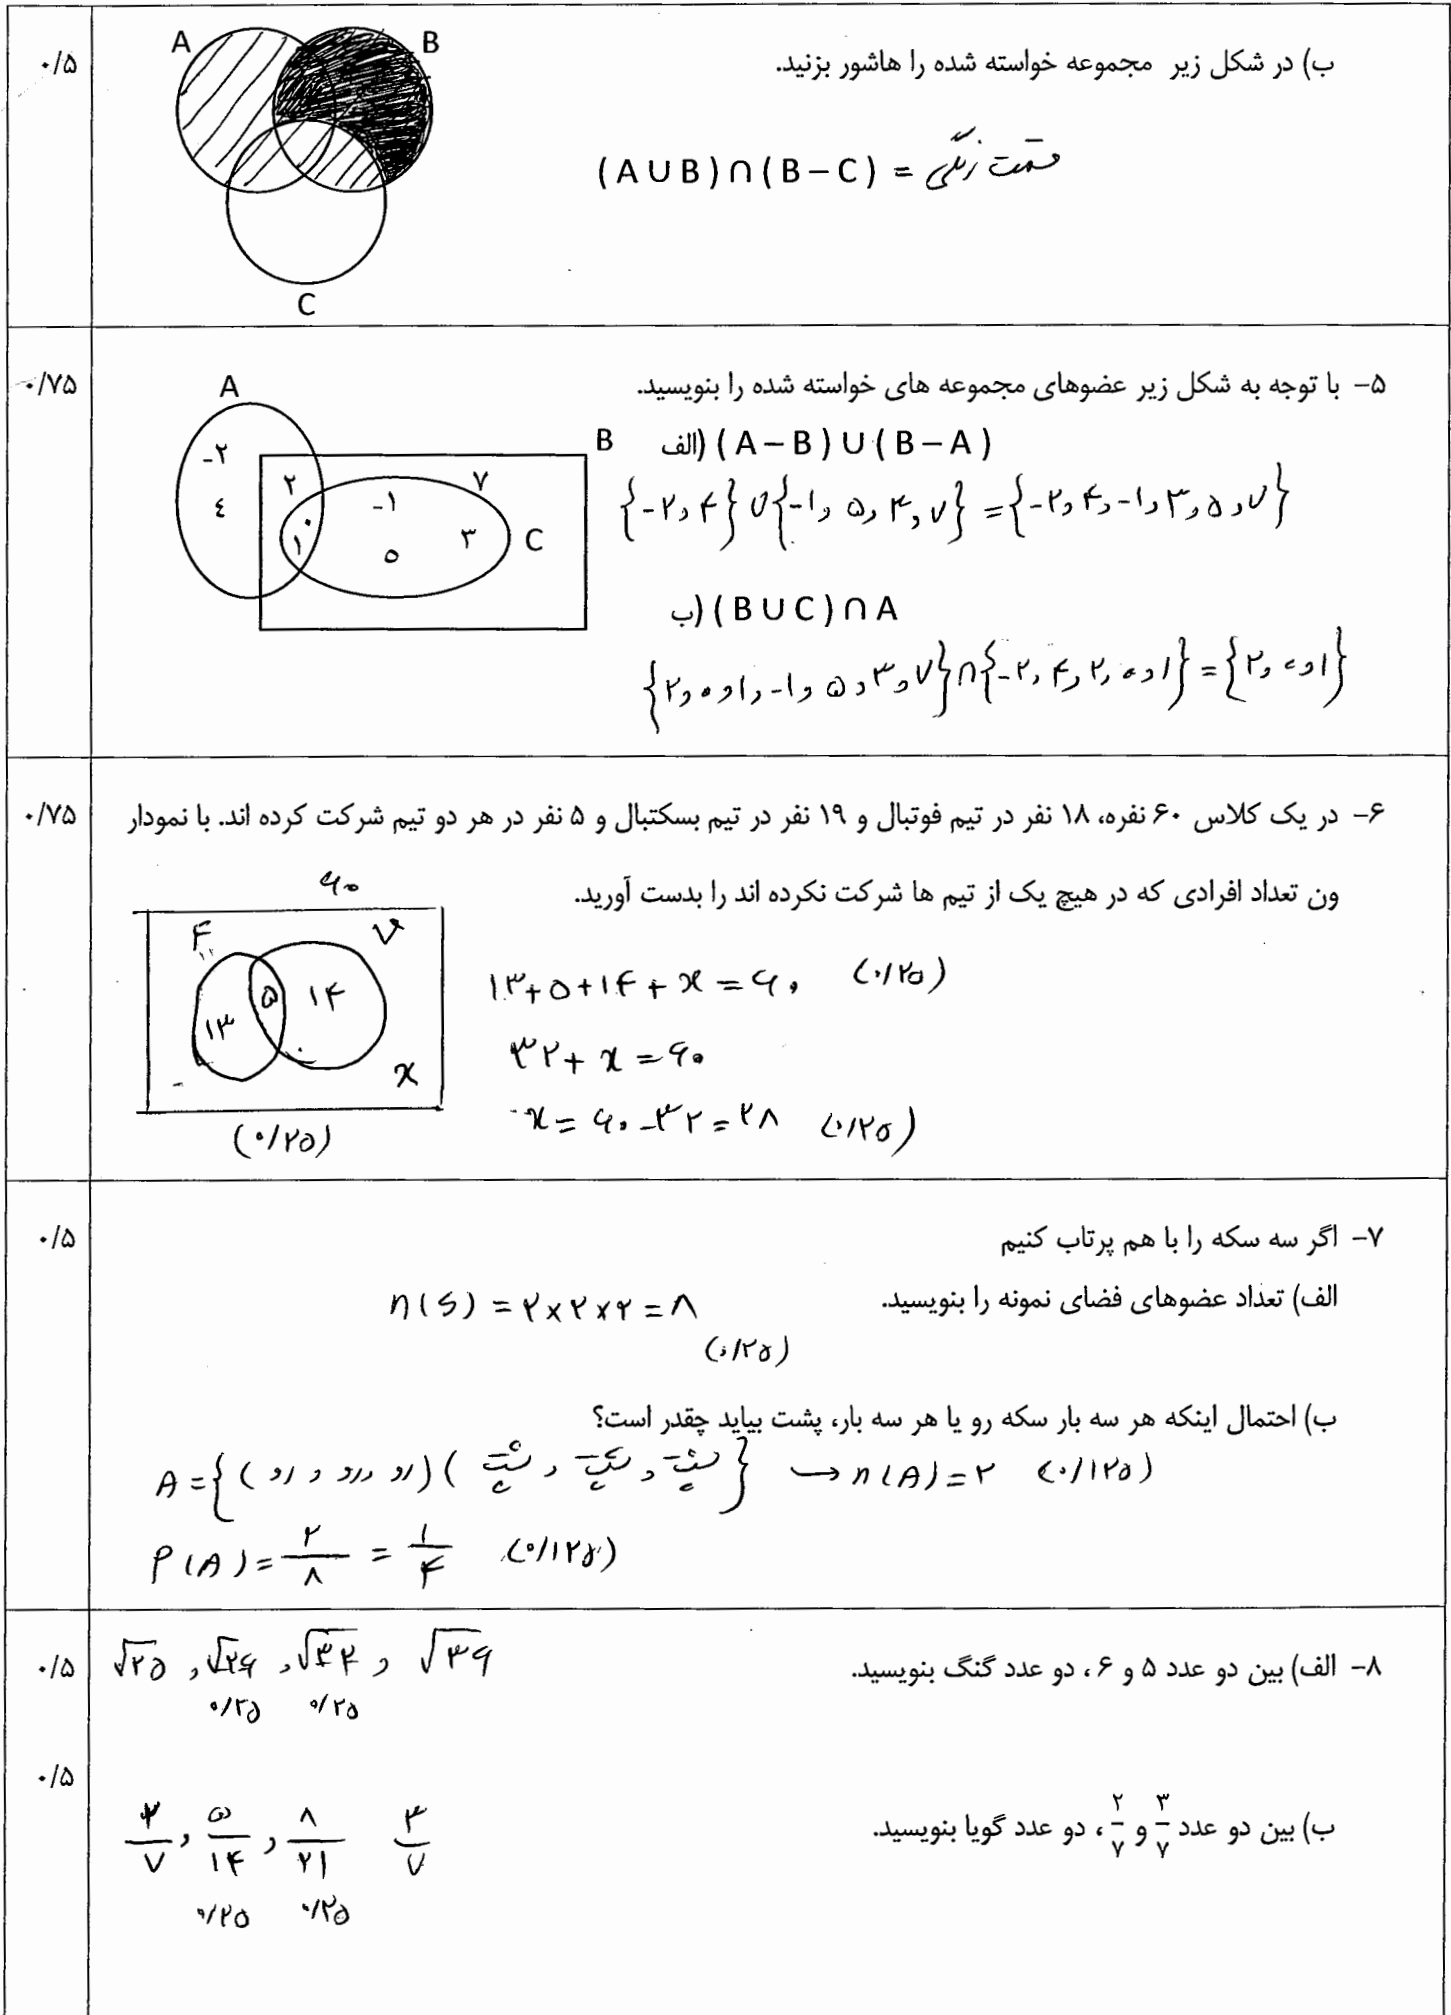 ۰/۵
ب) در شکل زیر مجموعه خواسته شده را هاشور بزنید.
A B
(A∪B)∩(B−C) = قسمت رنگی
C
۰/۷۵
۵- با توجه به شکل زیر عضوهای مجموعه های خواسته شده را بنویسید.
A
B
-۲ ۴ ۲ ۰ ۱ -۱ ۵ ۳ ۷
C
الف) (A−B)∪(B−A)
{-۲, ۴} ∪ {-۱, ۵, ۳, ۷} = {-۲, ۴, -۱, ۳, ۵, ۷}
ب) (B∪C)∩A
{۲, ۰, ۱, -۱, ۵, ۳, ۷} ∩ {-۲, ۴, ۲, ۰, ۱} = {۲, ۰, ۱}
۰/۷۵
۶- در یک کلاس ۶۰ نفره، ۱۸ نفر در تیم فوتبال و ۱۹ نفر در تیم بسکتبال و ۵ نفر در هر دو تیم شرکت کرده اند. با نمودار
ون تعداد افرادی که در هیچ یک از تیم ها شرکت نکرده اند را بدست آورید.
۶۰
F V
۱۳ ۵ ۱۴
x
(۰/۲۵)
۱۳+۵+۱۴+x=۶۰ (۰/۲۵)
۳۲+x=۶۰
x=۶۰-۳۲=۲۸ (۰/۲۵)
۰/۵
۷- اگر سه سکه را با هم پرتاب کنیم
الف) تعداد عضوهای فضای نمونه را بنویسید.
n(S) = ۲×۲×۲=۸
(۰/۲۵)
ب) احتمال اینکه هر سه بار سکه رو یا هر سه بار، پشت بیاید چقدر است؟
A={(رو و رو و رو) (پشت و پشت و پشت)} → n(A)=۲ (۰/۱۲۵)
P(A)=۲/۸ = ۱/۴ (۰/۱۲۵)
۰/۵
۸- الف) بین دو عدد ۵ و ۶ ، دو عدد گنگ بنویسید.
√۲۵ , √۲۶ , √۳۲ , √۳۶
۰/۲۵ ۰/۲۵
۰/۵
ب) بین دو عدد ۳/۷ و ۲/۷ ، دو عدد گویا بنویسید.
۲/۷ , ۵/۱۴ , ۸/۲۱ ۳/۷
۰/۲۵ ۰/۲۵